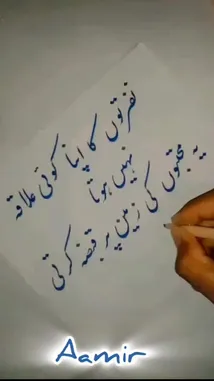 نفرتوں کا اپنا کوئی علاقہ
نہیں ہوتا
یہ محبتوں کی زمین پر قبضہ کرتی
Aamir